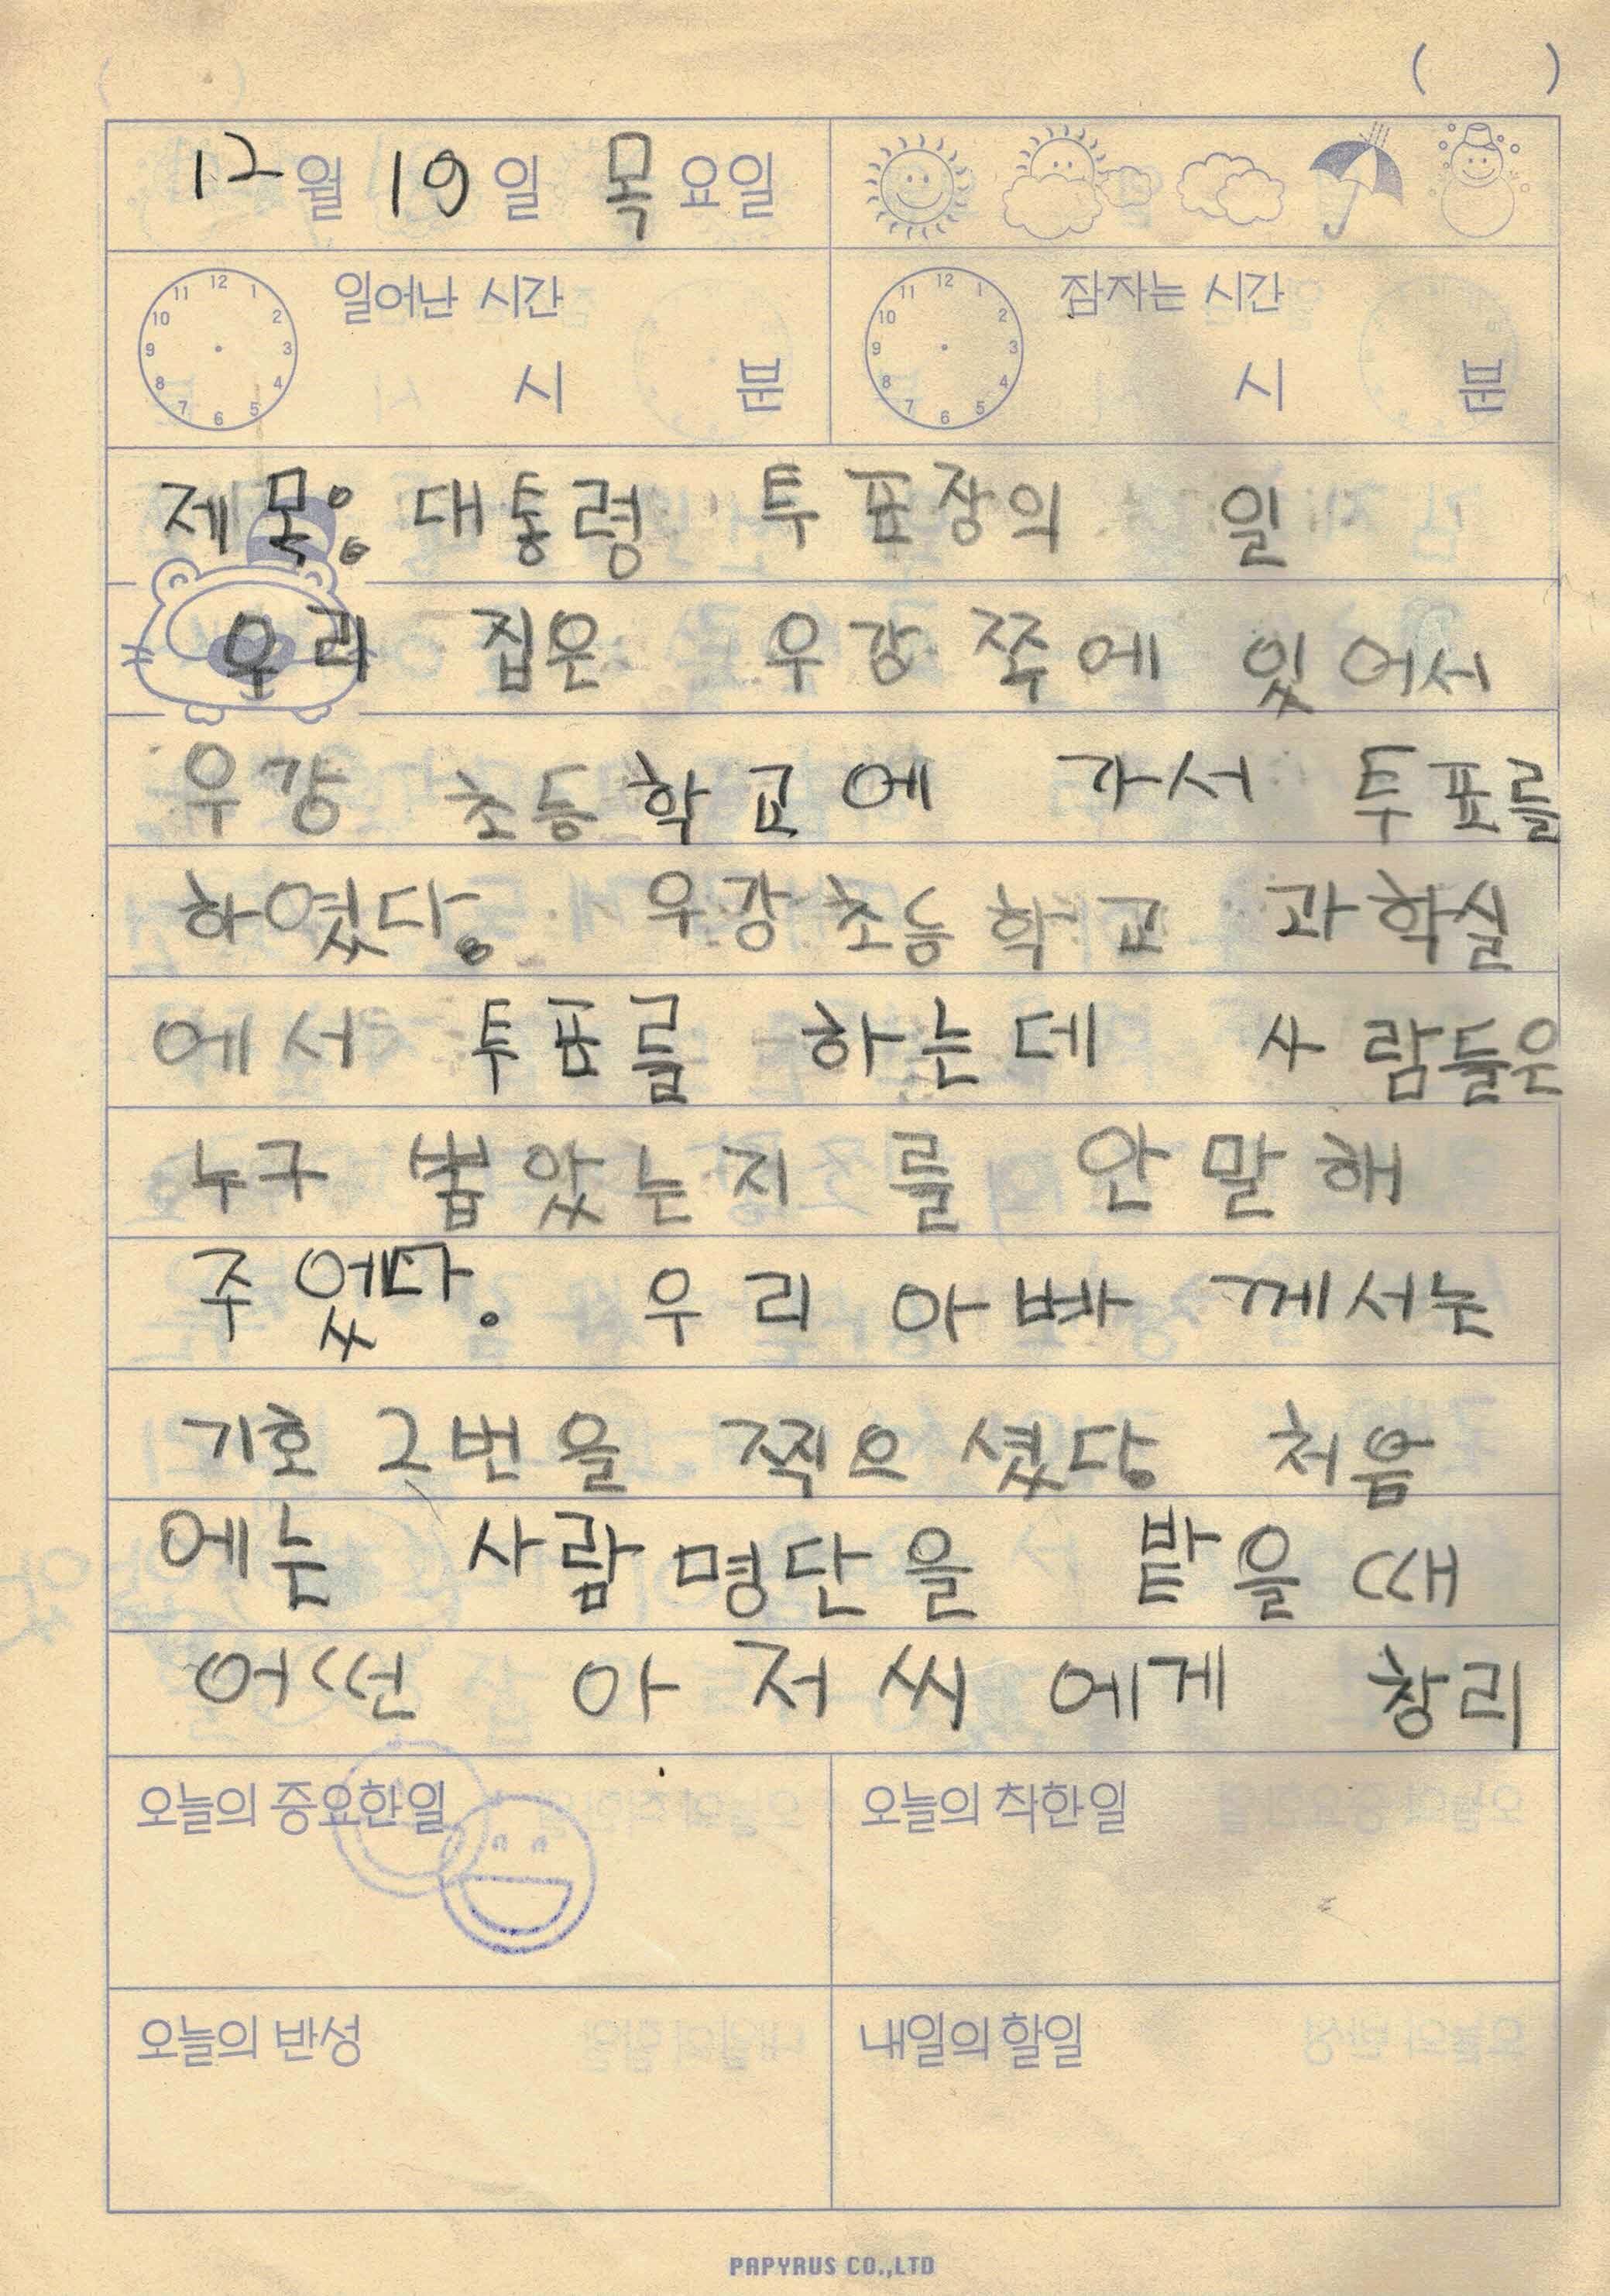 ( )
12월 19일 목요일
일어난 시간
시 분
잠자는 시간
시 분
제목: 대통령 투표장의 일
우리 집은 우강 쪽에 있어서
우강 초등학교에 가서 투표를
하였다. 우강초등학교 과학실
에서 투표를 하는데 사람들은
누구 뽑았는지를 안말해
주었다. 우리 아빠께서는
기호 2번을 찍으셨다. 처음
에는 사람명단을 밭을때
어떤 아저씨에게 창리
오늘의 중요한일
오늘의 착한일
오늘의 반성
내일의 할일
PAPYRUS CO.,LTD